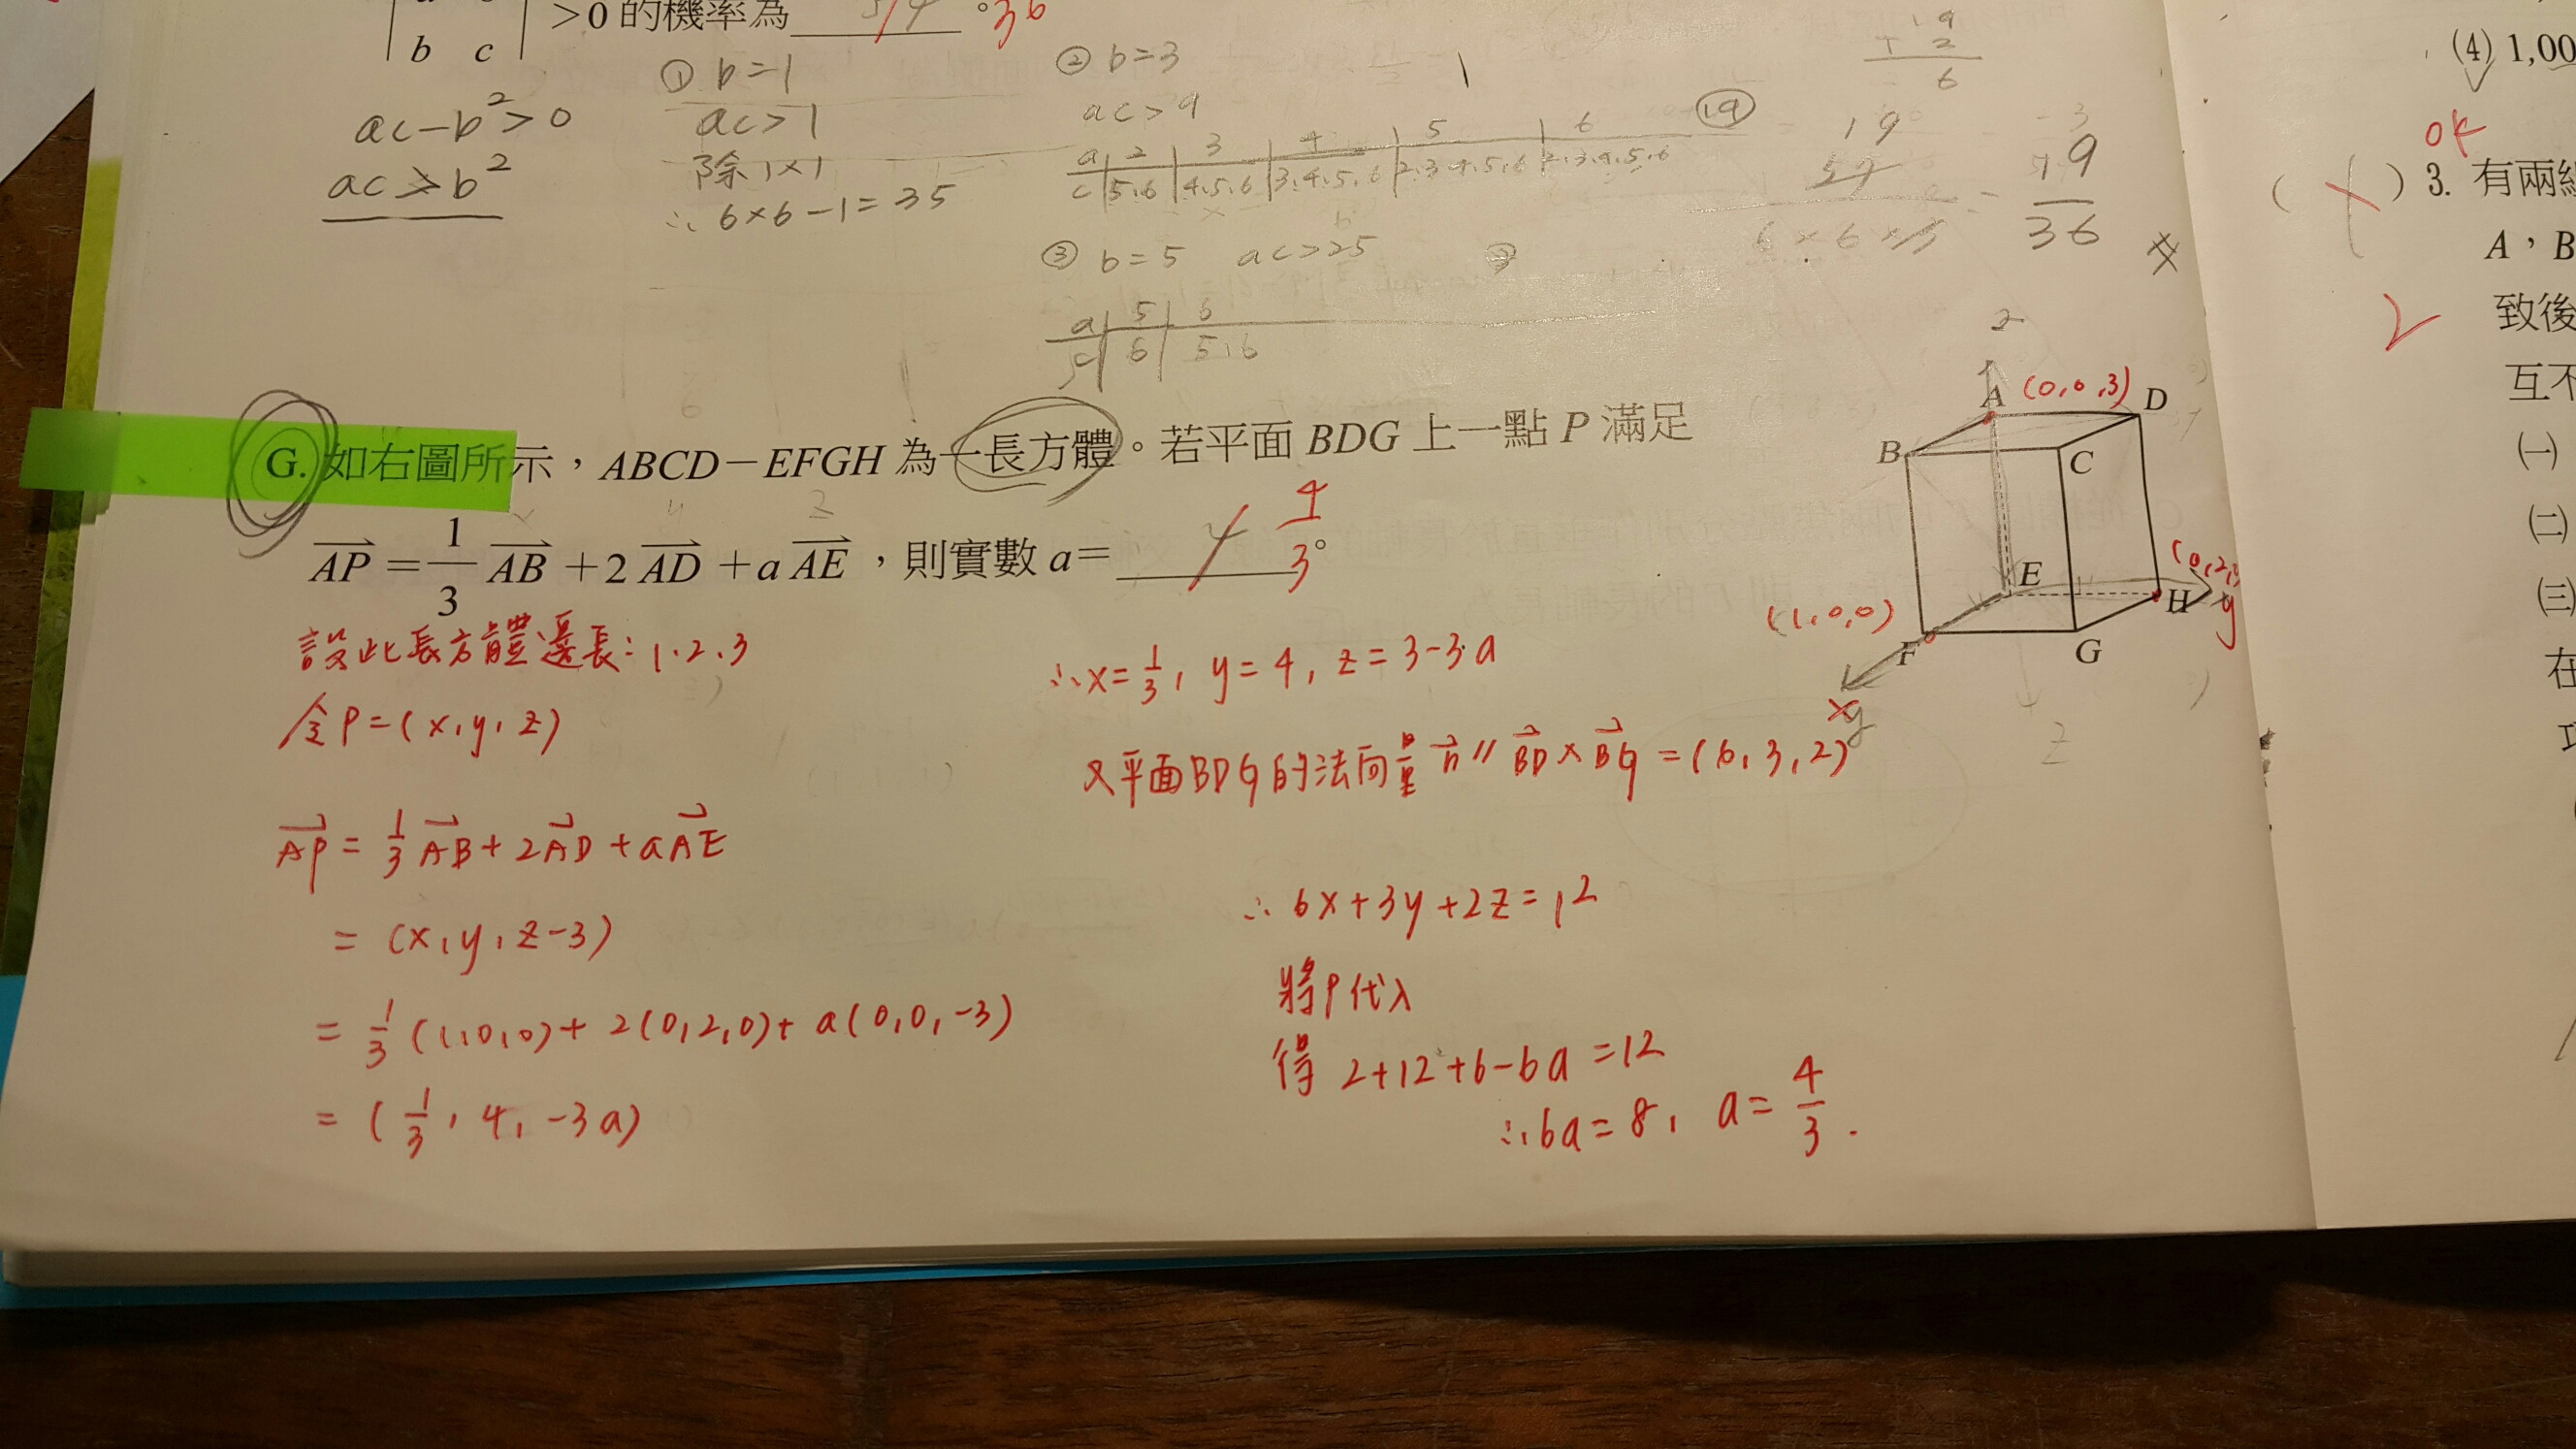 b c >0 的機率為 。36
ac-b²>0
ac>b²
① b=1
ac>1
除1×1
∴ 6×6-1=35
② b=3
ac>9
a 2 3 4 5 6 19
c 5,6 4,5,6 3,4,5,6 2,3,4,5,6 2,3,4,5,6
③ b=5 ac>25
a 5 6
c 6 5,6
19
36
G. 如右圖所示，ABCD－EFGH 為一長方體。若平面 BDG 上一點 P 滿足
AP = 1/3 AB + 2 AD + a AE，則實數 a= 4/3。
設此長方體邊長:1、2、3
令P=(x,y,z)
AP = 1/3 AB + 2AD + aAE
= (x,y,z-3)
= 1/3 (1,0,0)+ 2(0,2,0)+ a(0,0,-3)
= (1/3, 4, -3a)
∴x=1/3, y=4, z=3-3a
又平面BDG的法向量 n // BD × BG =(6,3,2)
∴ 6x+3y+2z=12
將P代入
得 2+12+6-6a =12
∴6a=8, a= 4/3.
z
A (0,0,3) D
B C
E
(1,0,0) F G H y
x
y
z
(4) 1,00
OK
( ) 3. 有兩
A，B
致後
互不
㈠
㈡
㈢
在